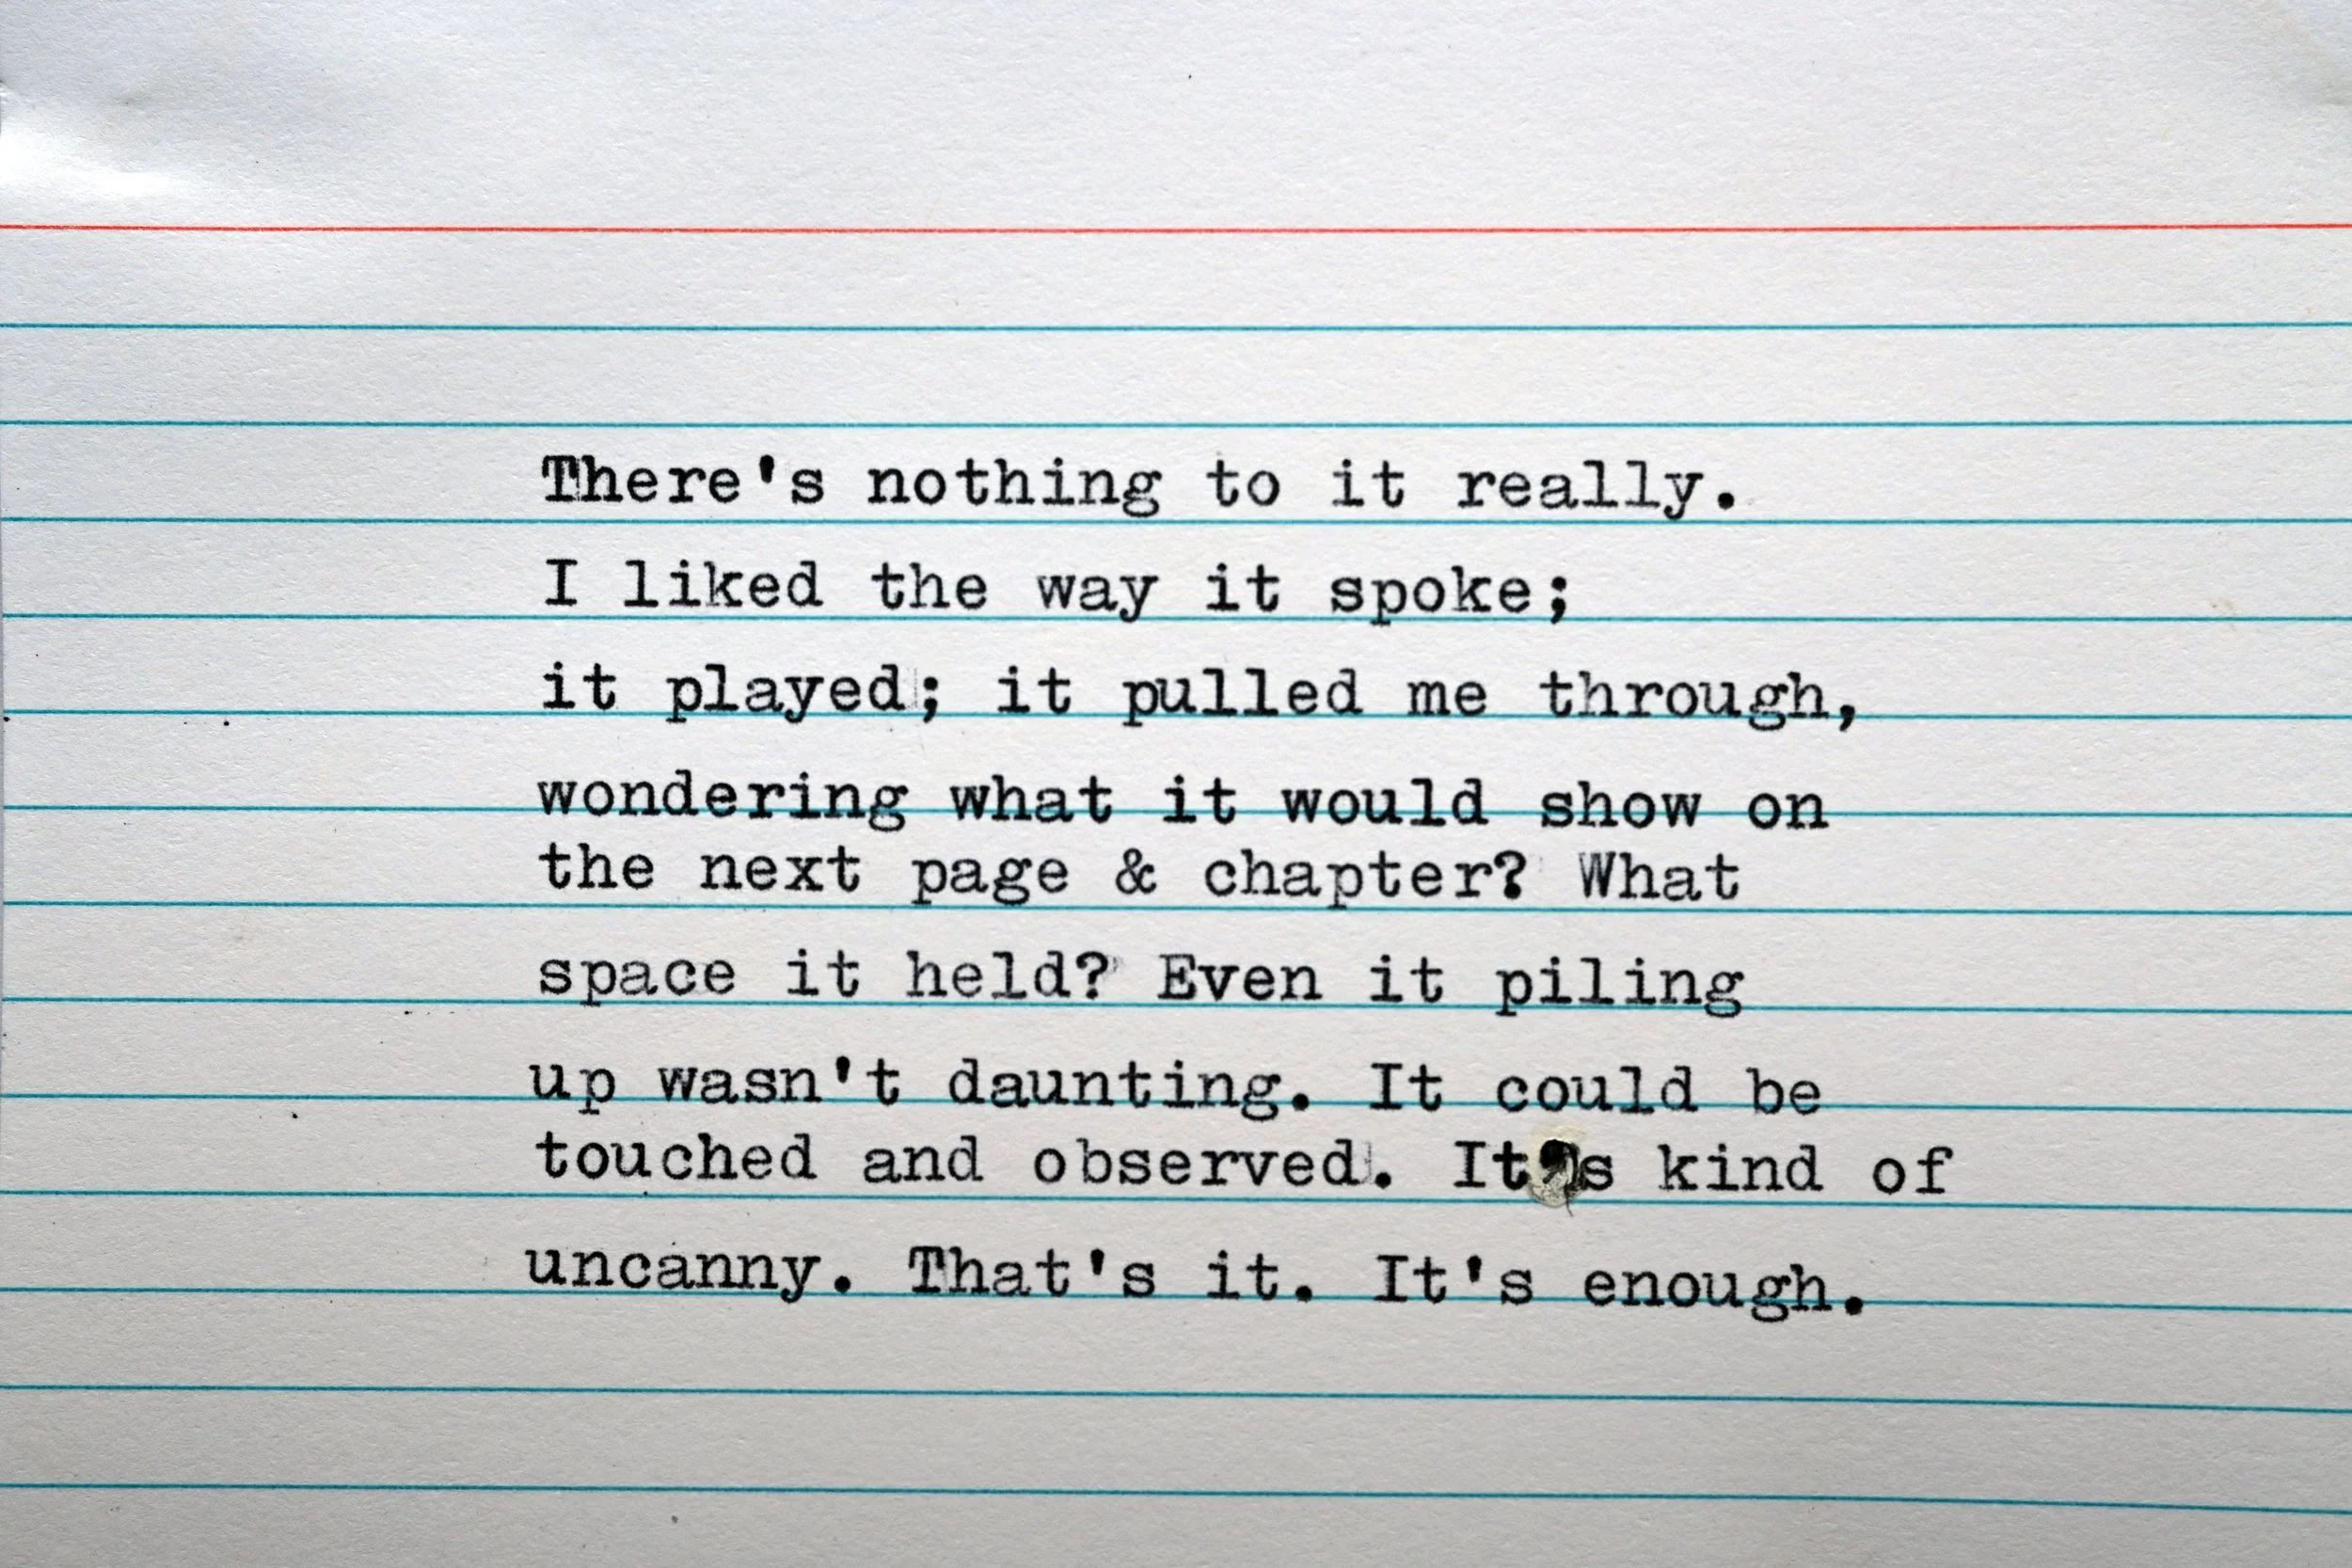 There's nothing to it really.
I liked the way it spoke;
it played; it pulled me through,
wondering what it would show on
the next page & chapter? What
space it held? Even it piling
up wasn't daunting. It could be
touched and observed. It's kind of
uncanny. That's it. It's enough.